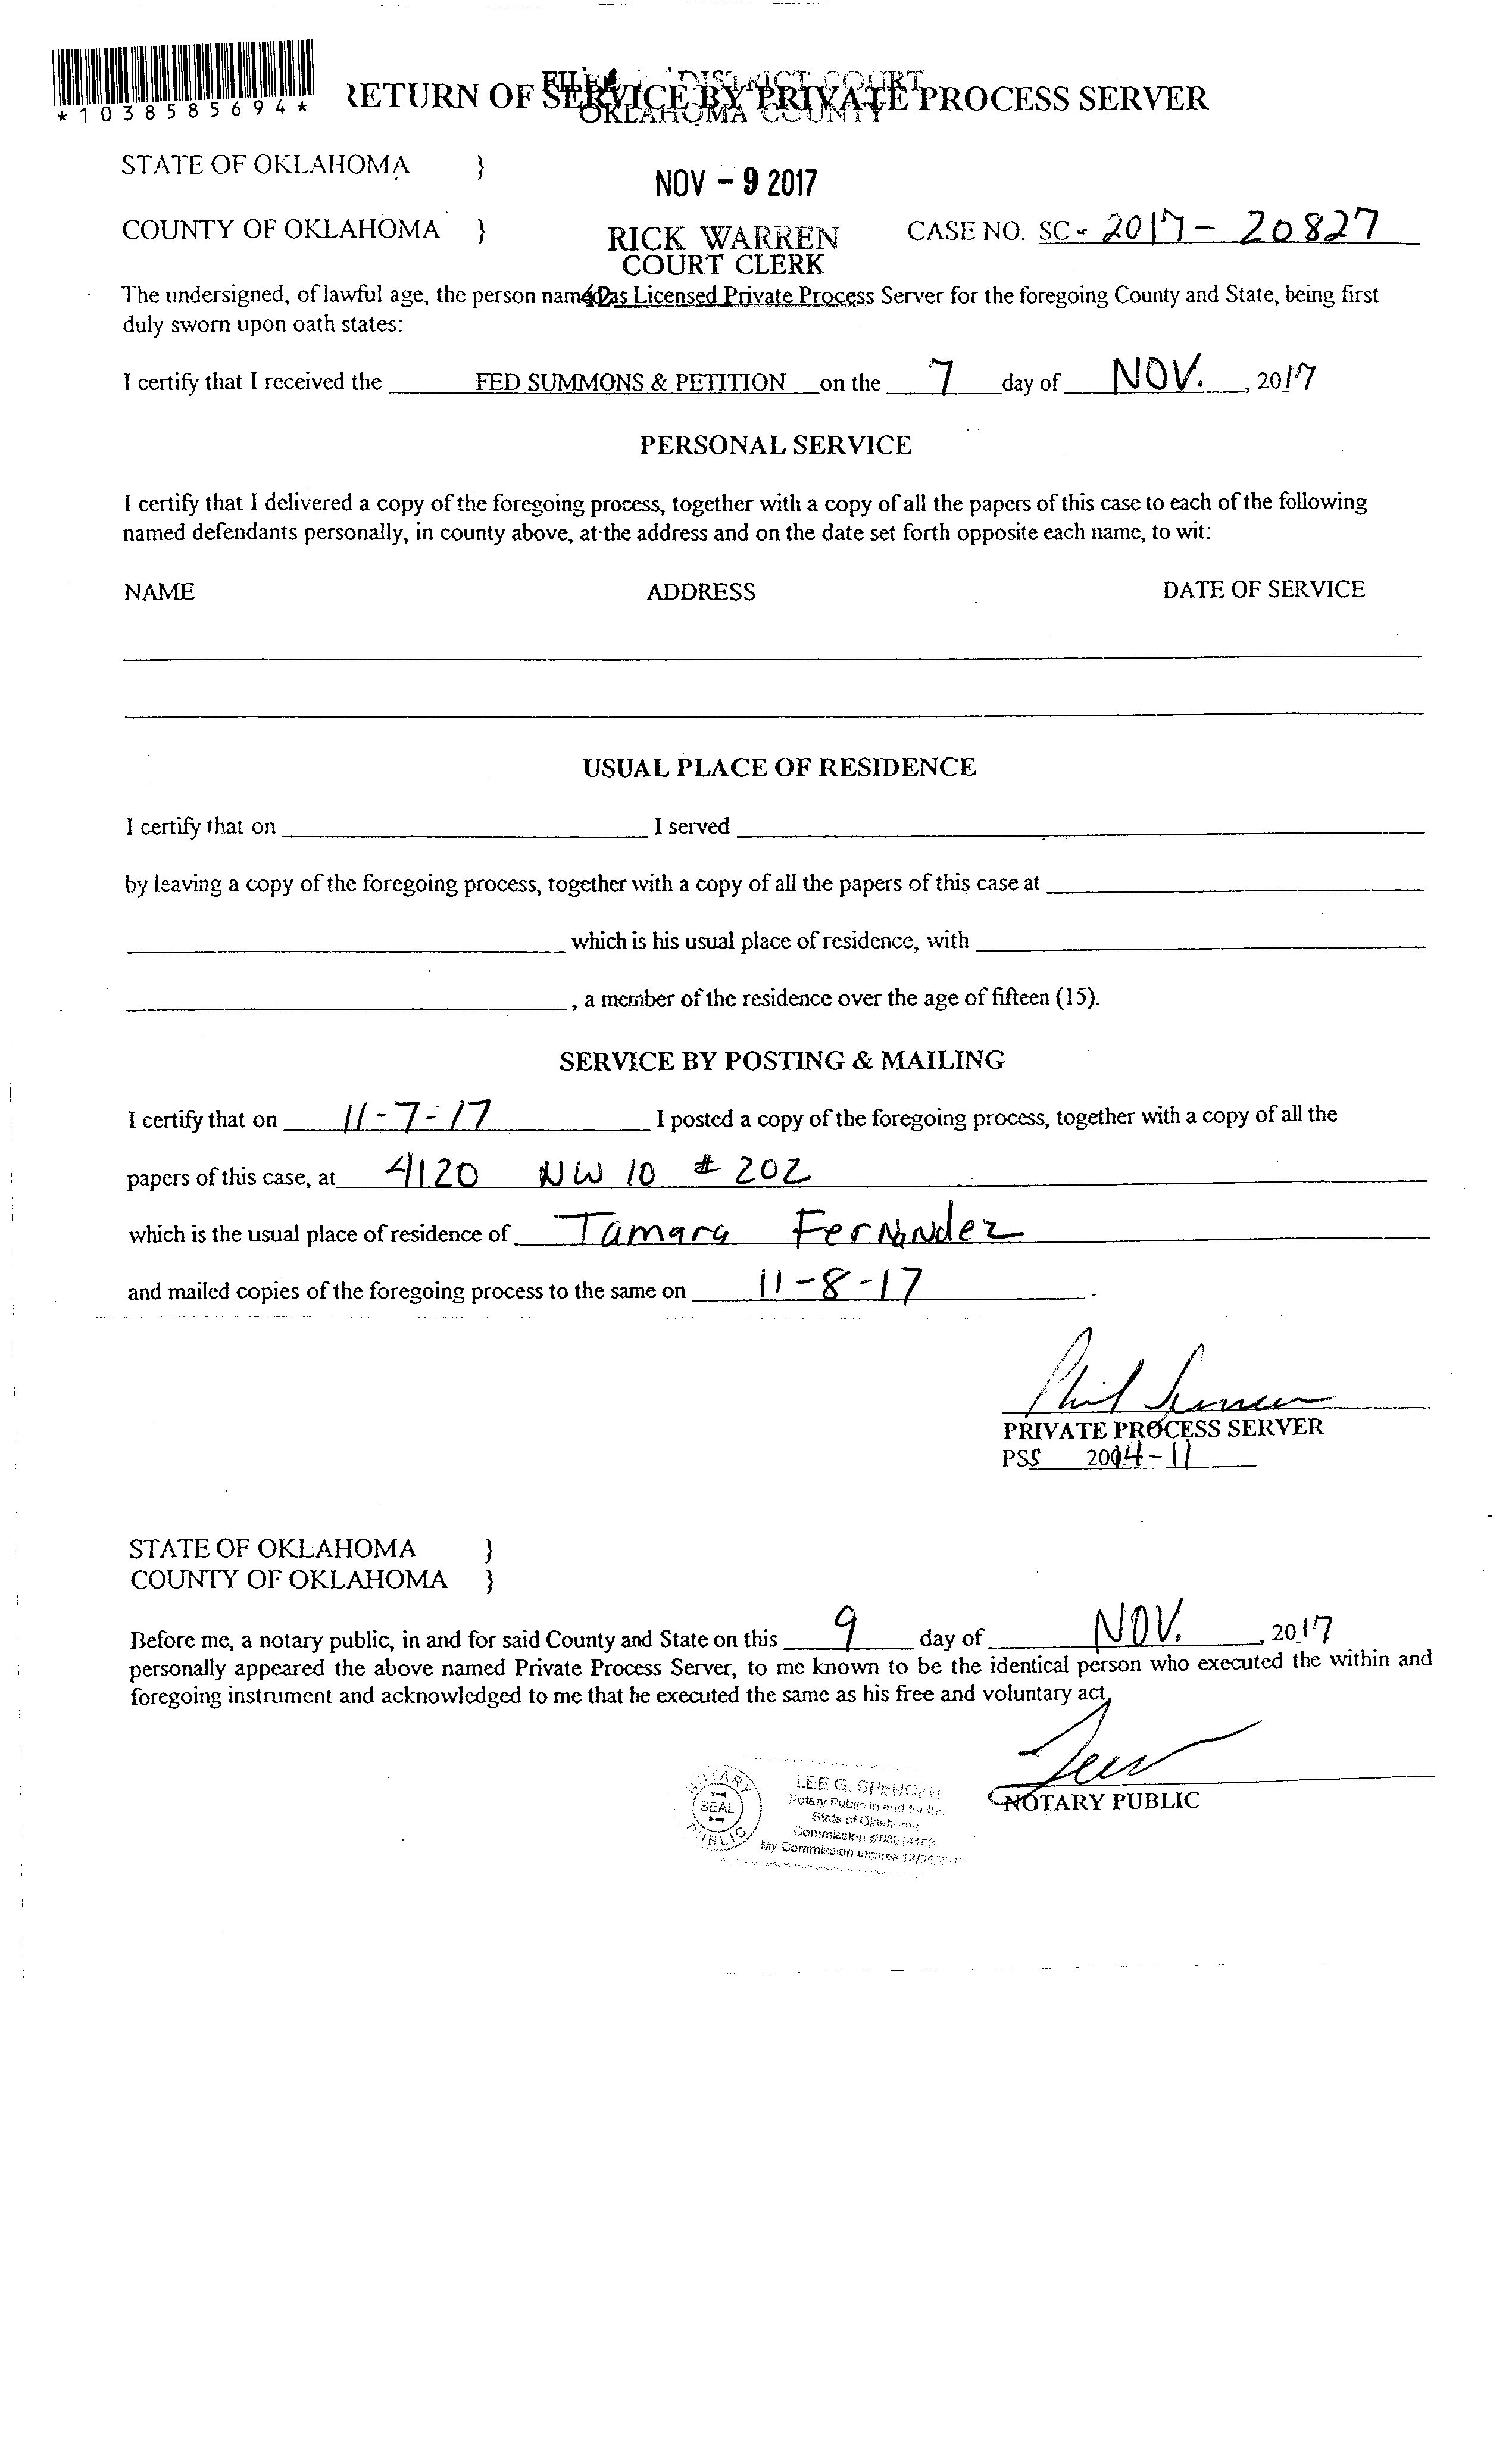 *1038585694*
RETURN OF SERVICE BY PRIVATE PROCESS SERVER
DISTRICT COURT
OKLAHOMA COUNTY
STATE OF OKLAHOMA }
NOV - 9 2017
COUNTY OF OKLAHOMA }
RICK WARREN
COURT CLERK
CASE NO. SC - 2017 - 20827
The undersigned, of lawful age, the person named as Licensed Private Process Server for the foregoing County and State, being first
duly sworn upon oath states:
I certify that I received the FED SUMMONS & PETITION on the 7 day of NOV. , 2017
PERSONAL SERVICE
I certify that I delivered a copy of the foregoing process, together with a copy of all the papers of this case to each of the following
named defendants personally, in county above, at the address and on the date set forth opposite each name, to wit:
NAME ADDRESS DATE OF SERVICE
USUAL PLACE OF RESIDENCE
I certify that on I served
by leaving a copy of the foregoing process, together with a copy of all the papers of this case at
which is his usual place of residence, with
, a member of the residence over the age of fifteen (15).
SERVICE BY POSTING & MAILING
I certify that on 11-7-17 I posted a copy of the foregoing process, together with a copy of all the
papers of this case, at 4120 NW 10 # 202
which is the usual place of residence of Tamara Fernandez
and mailed copies of the foregoing process to the same on 11-8-17 .
PRIVATE PROCESS SERVER
PSS 2004-11
STATE OF OKLAHOMA }
COUNTY OF OKLAHOMA }
Before me, a notary public, in and for said County and State on this 9 day of NOV. , 2017
personally appeared the above named Private Process Server, to me known to be the identical person who executed the within and
foregoing instrument and acknowledged to me that he executed the same as his free and voluntary act.
NOTARY PUBLIC
SEAL
LEE G. SPENCER
Notary Public in and for the
State of Oklahoma
Commission
My Commission expires
NOTARY PUBLIC